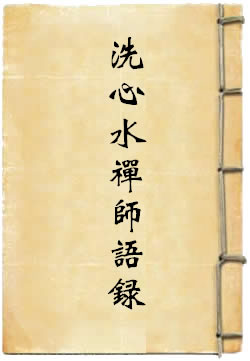 洗心水禪師語録